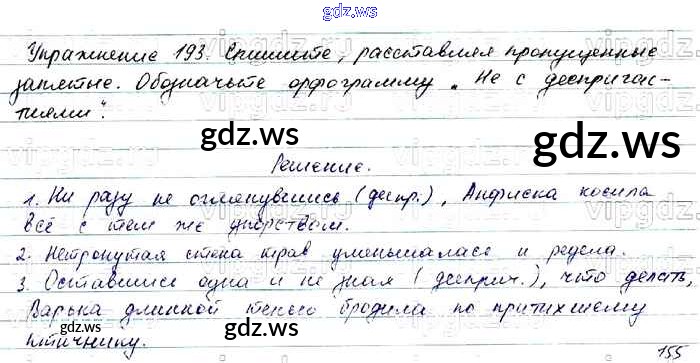 gdz.ws
Упражнение 193. Спишите, расставляя пропущенные
запятые. Обозначьте орфограмму „Не с деепричас-
тиями".
gdz.ws
Решение.
1. Ни разу не оглянувшись (деепр.), Анфиска косила
всё с тем же упорством.
2. Нетронутая стена трав уменьшалась и редела.
3. Оставшись одна и не зная (дееприч.), что делать,
Варька длинной тенью бродила по притихшему
птичнику.
gdz.ws
gdz.ws
155